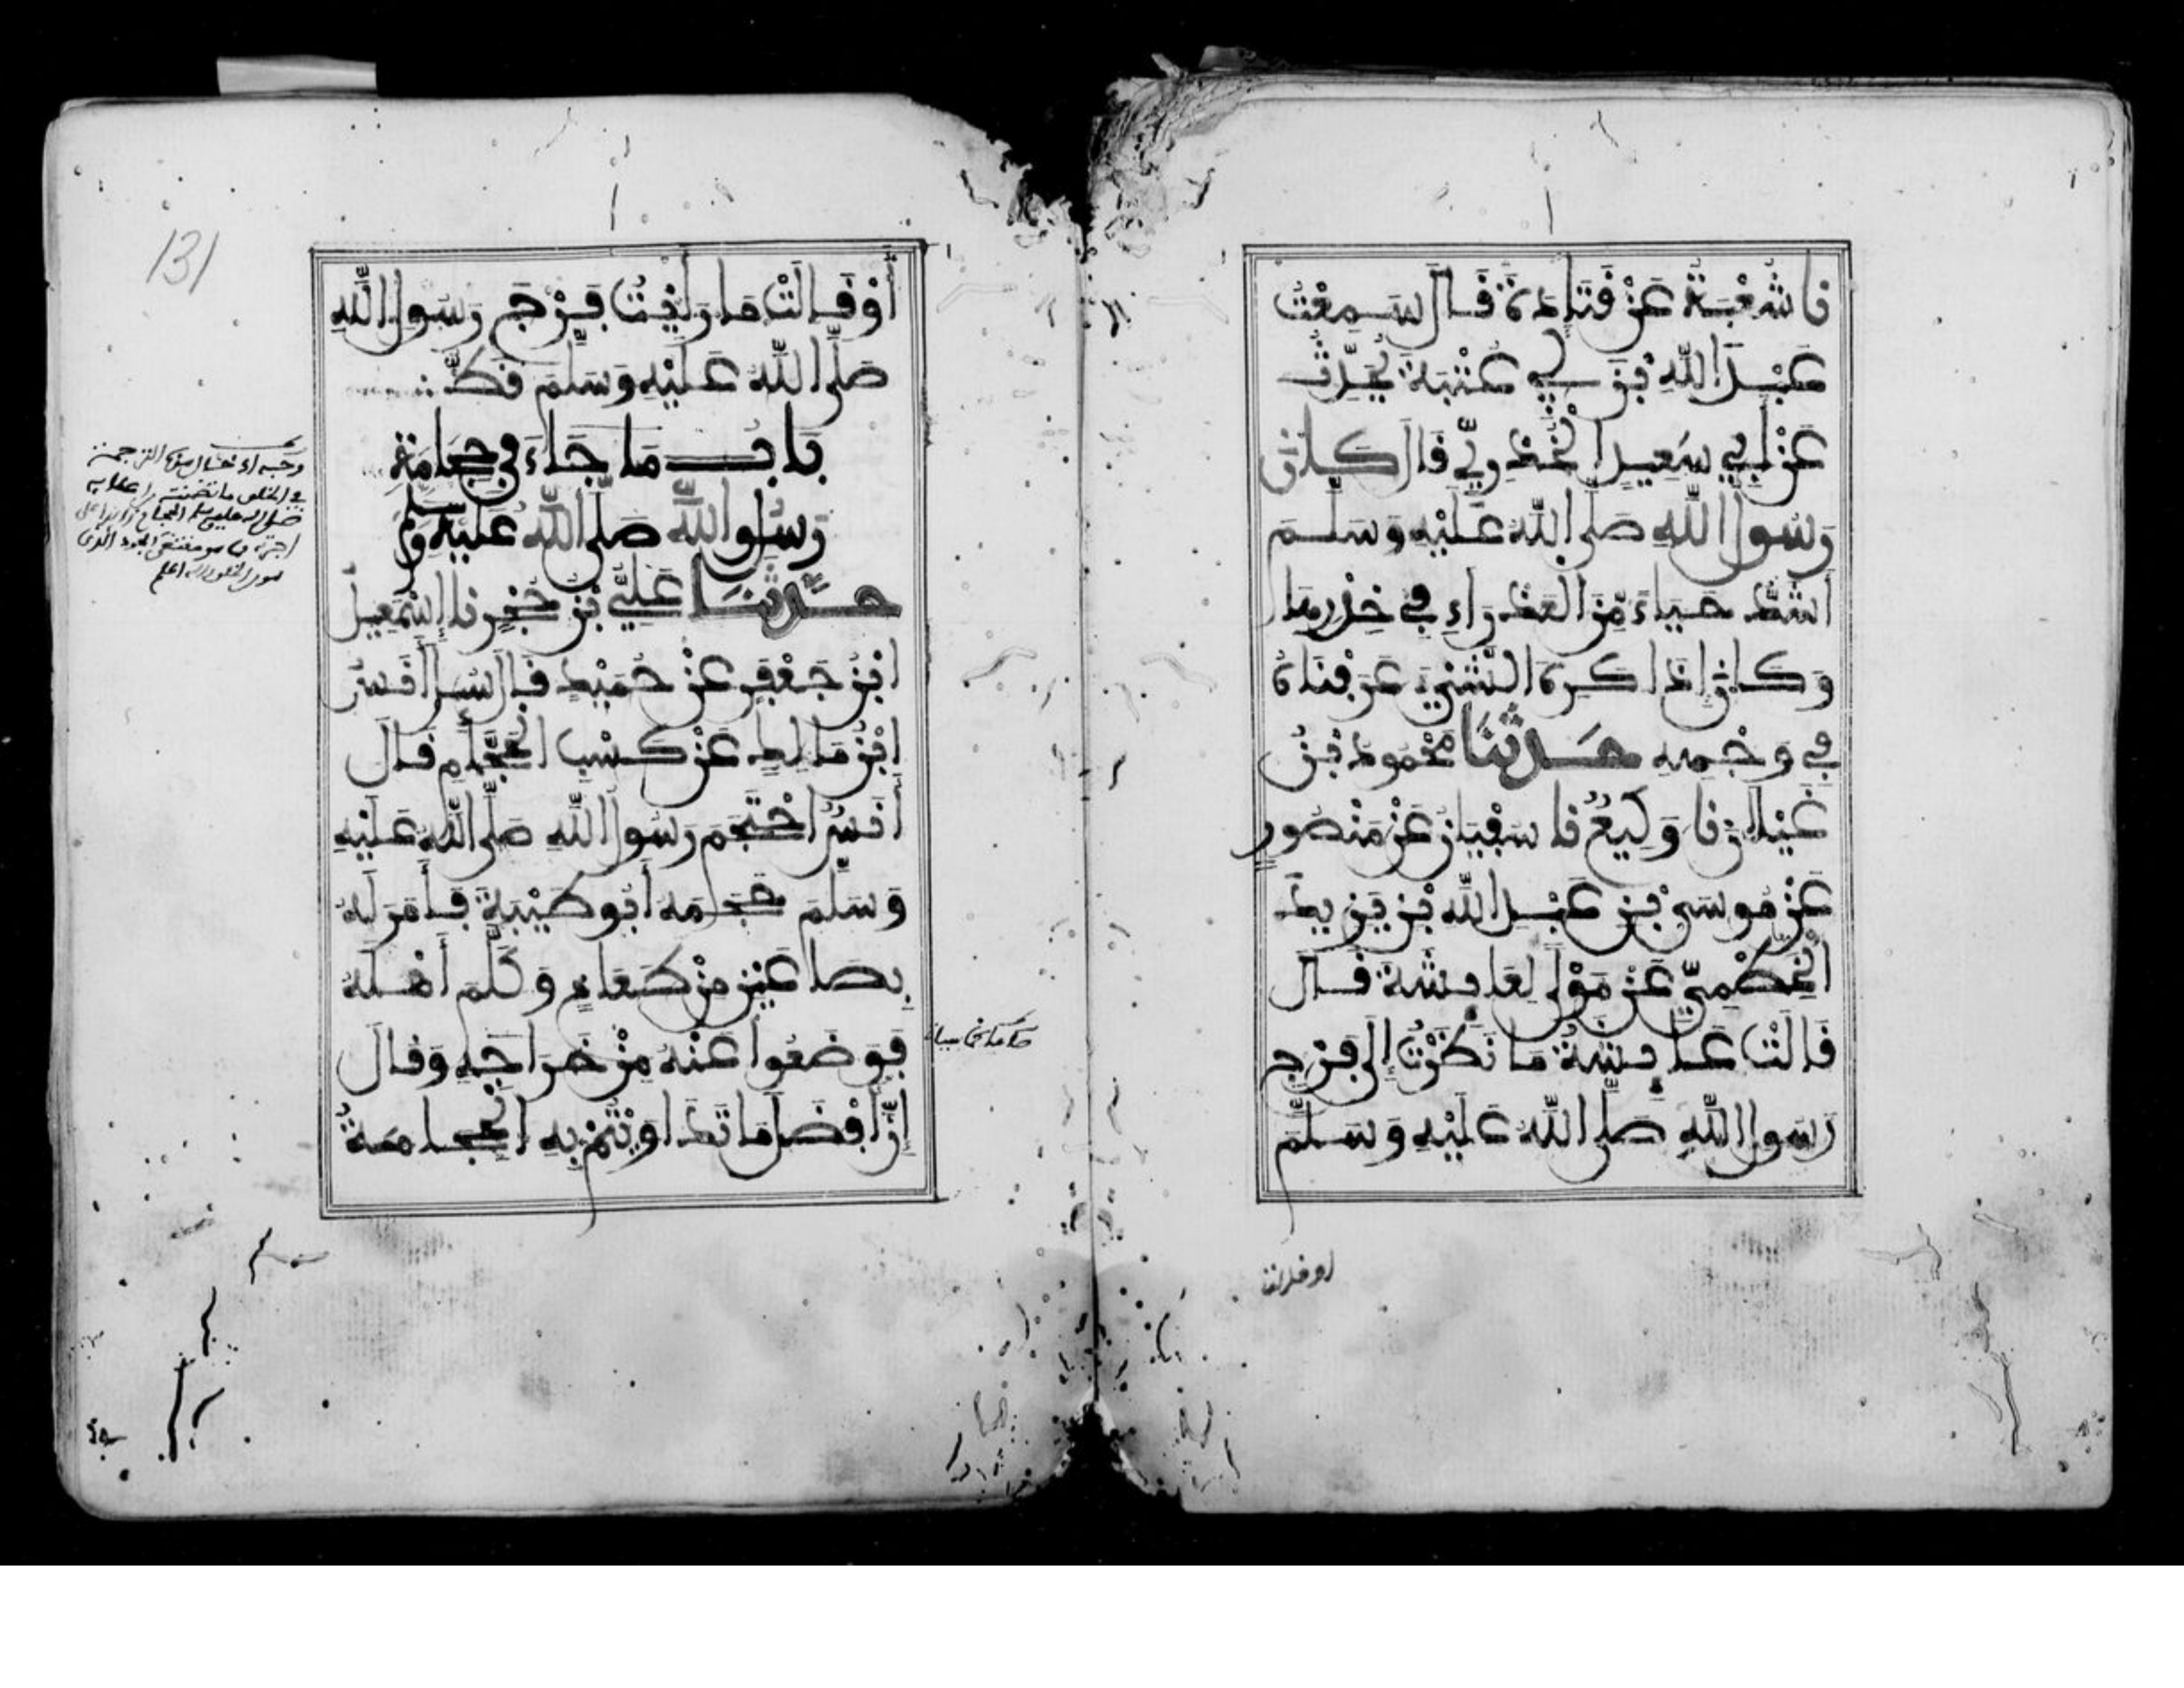 نا شُعْبَةُ عَنْ قَتَادَةَ قَالَ سَمِعْتُ
عَبْدَ اللَّهِ بْنَ أَبِي عُتْبَةَ يُحَدِّثُ
عَنْ أَبِي سَعِيدٍ الْخُدْرِيِّ قَالَ كَانَ
رَسُولُ اللَّهِ صَلَّى اللَّهُ عَلَيْهِ وَسَلَّمَ
أَشَدَّ حَيَاءً مِنَ الْعَذْرَاءِ فِي خِدْرِهَا
وَكَانَ إِذَا كَرِهَ الشَّيْءَ عَرَفْنَاهُ
فِي وَجْهِهِ حَدَّثَنَا مَحْمُودُ بْنُ
غَيْلَانَ نا وَكِيعٌ نا سُفْيَانُ عَنْ مَنْصُورٍ
عَنْ مُوسَى بْنِ عَبْدِ اللَّهِ بْنِ يَزِيدَ
الْخَطْمِيِّ عَنْ مَوْلًى لِعَائِشَةَ قَالَ
قَالَتْ عَائِشَةُ مَا نَظَرْتُ إِلَى فَرْجِ
رَسُولِ اللَّهِ صَلَّى اللَّهُ عَلَيْهِ وَسَلَّمَ
أو قالت
131
أَوْ قَالَتْ مَا رَأَيْتُ فَرْجَ رَسُولِ اللَّهِ
صَلَّى اللَّهُ عَلَيْهِ وَسَلَّمَ قَطُّ
بَابُ مَا جَاءَ فِي حِجَامَةِ
رَسُولِ اللَّهِ صَلَّى اللَّهُ عَلَيْهِ وَسَلَّمَ
حَدَّثَنَا عَلِيُّ بْنُ حُجْرٍ نا إِسْمَعِيلُ
ابْنُ جَعْفَرٍ عَنْ حُمَيْدٍ قَالَ سُئِلَ أَنَسُ
ابْنُ مَالِكٍ عَنْ كَسْبِ الْحَجَّامِ فَقَالَ
أَنَسٌ احْتَجَمَ رَسُولُ اللَّهِ صَلَّى اللَّهُ عَلَيْهِ
وَسَلَّمَ حَجَمَهُ أَبُو طَيْبَةَ فَأَمَرَ لَهُ
بِصَاعَيْنِ مِنْ طَعَامٍ وَكَلَّمَ أَهْلَهُ
فَوَضَعُوا عَنْهُ مِنْ خَرَاجِهِ وَقَالَ
إِنَّ أَفْضَلَ مَا تَدَاوَيْتُمْ بِهِ الْحِجَامَةُ